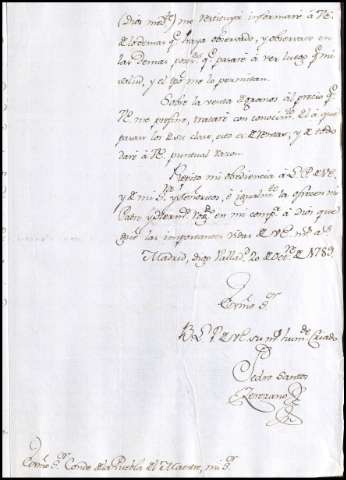 (Dios med.te) me restituya informaré à VE.
de lo demas q.e haya observado, y observare en
las demas poses.s q.e pasaré à ver luego q.e mi
salud, y el tpo me lo permitan.
Sobre la venta de granos al precio q.e
VE. me prefine, trataré con conocim.to de à que
pasan los de su clase, esto es de rentas, y de todo
daré à VE. puntual razon.
Repito mi obediencia à L. P. de VE.
y de mi S.ra y Señoritos, è igualm.te la ofrecen mi
Patro, y herm.s
en mi comp.a à Dios que
gue las importantes vidas de VE. m.s a.s
Madrid, digo Vallad. 20 de Oct.re de 1789.
Exmo S.or
B. L. P. de VE. su m.s hum.de Criado
Pedro Santos
Lorenzano
Exmo S.or Conde de la Puebla del Maestre, mi S.or